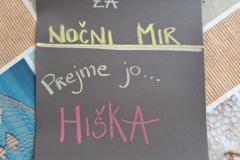 ZA
NOČNI MIR
Prejme jo...
HIŠKA